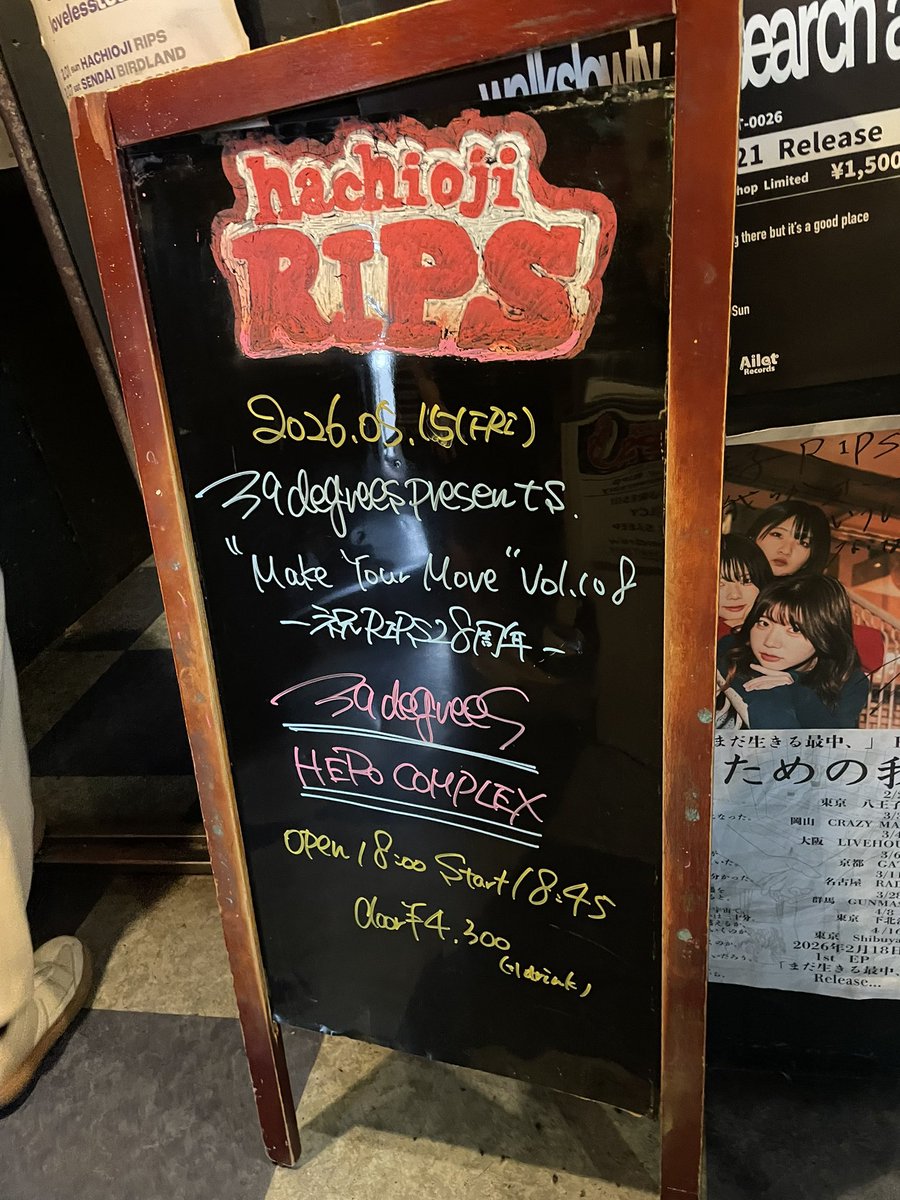 loveless
2.01 sun HACHIOJI RIPS
sat SENDAI BIRDLAND
walkslowly
hachioji
RIPS
2026.05.15(FRI)
39degrees presents.
"Make Your Move" Vol.108
-祝RIPS28周年-
39degrees
HERO COMPLEX
open18:00 Start18:45
door¥4.300
(+1drink)
earch a
T-0026
21 Release
hop Limited ¥1,500
g there but it's a good place
Sun
Ailet
Records
RIPS
まだ生きる最中、」
ための我
東京 八王子
岡山 CRAZY MA
大阪 LIVEHOU
3/6
京都 GA
3/1
名古屋 RAD
3/28
群馬 GUNMAS
4/8
東京 下北
4/16
東京 Shibuya
2026年2月18日
1st EP
「まだ生きる最中、
Release...